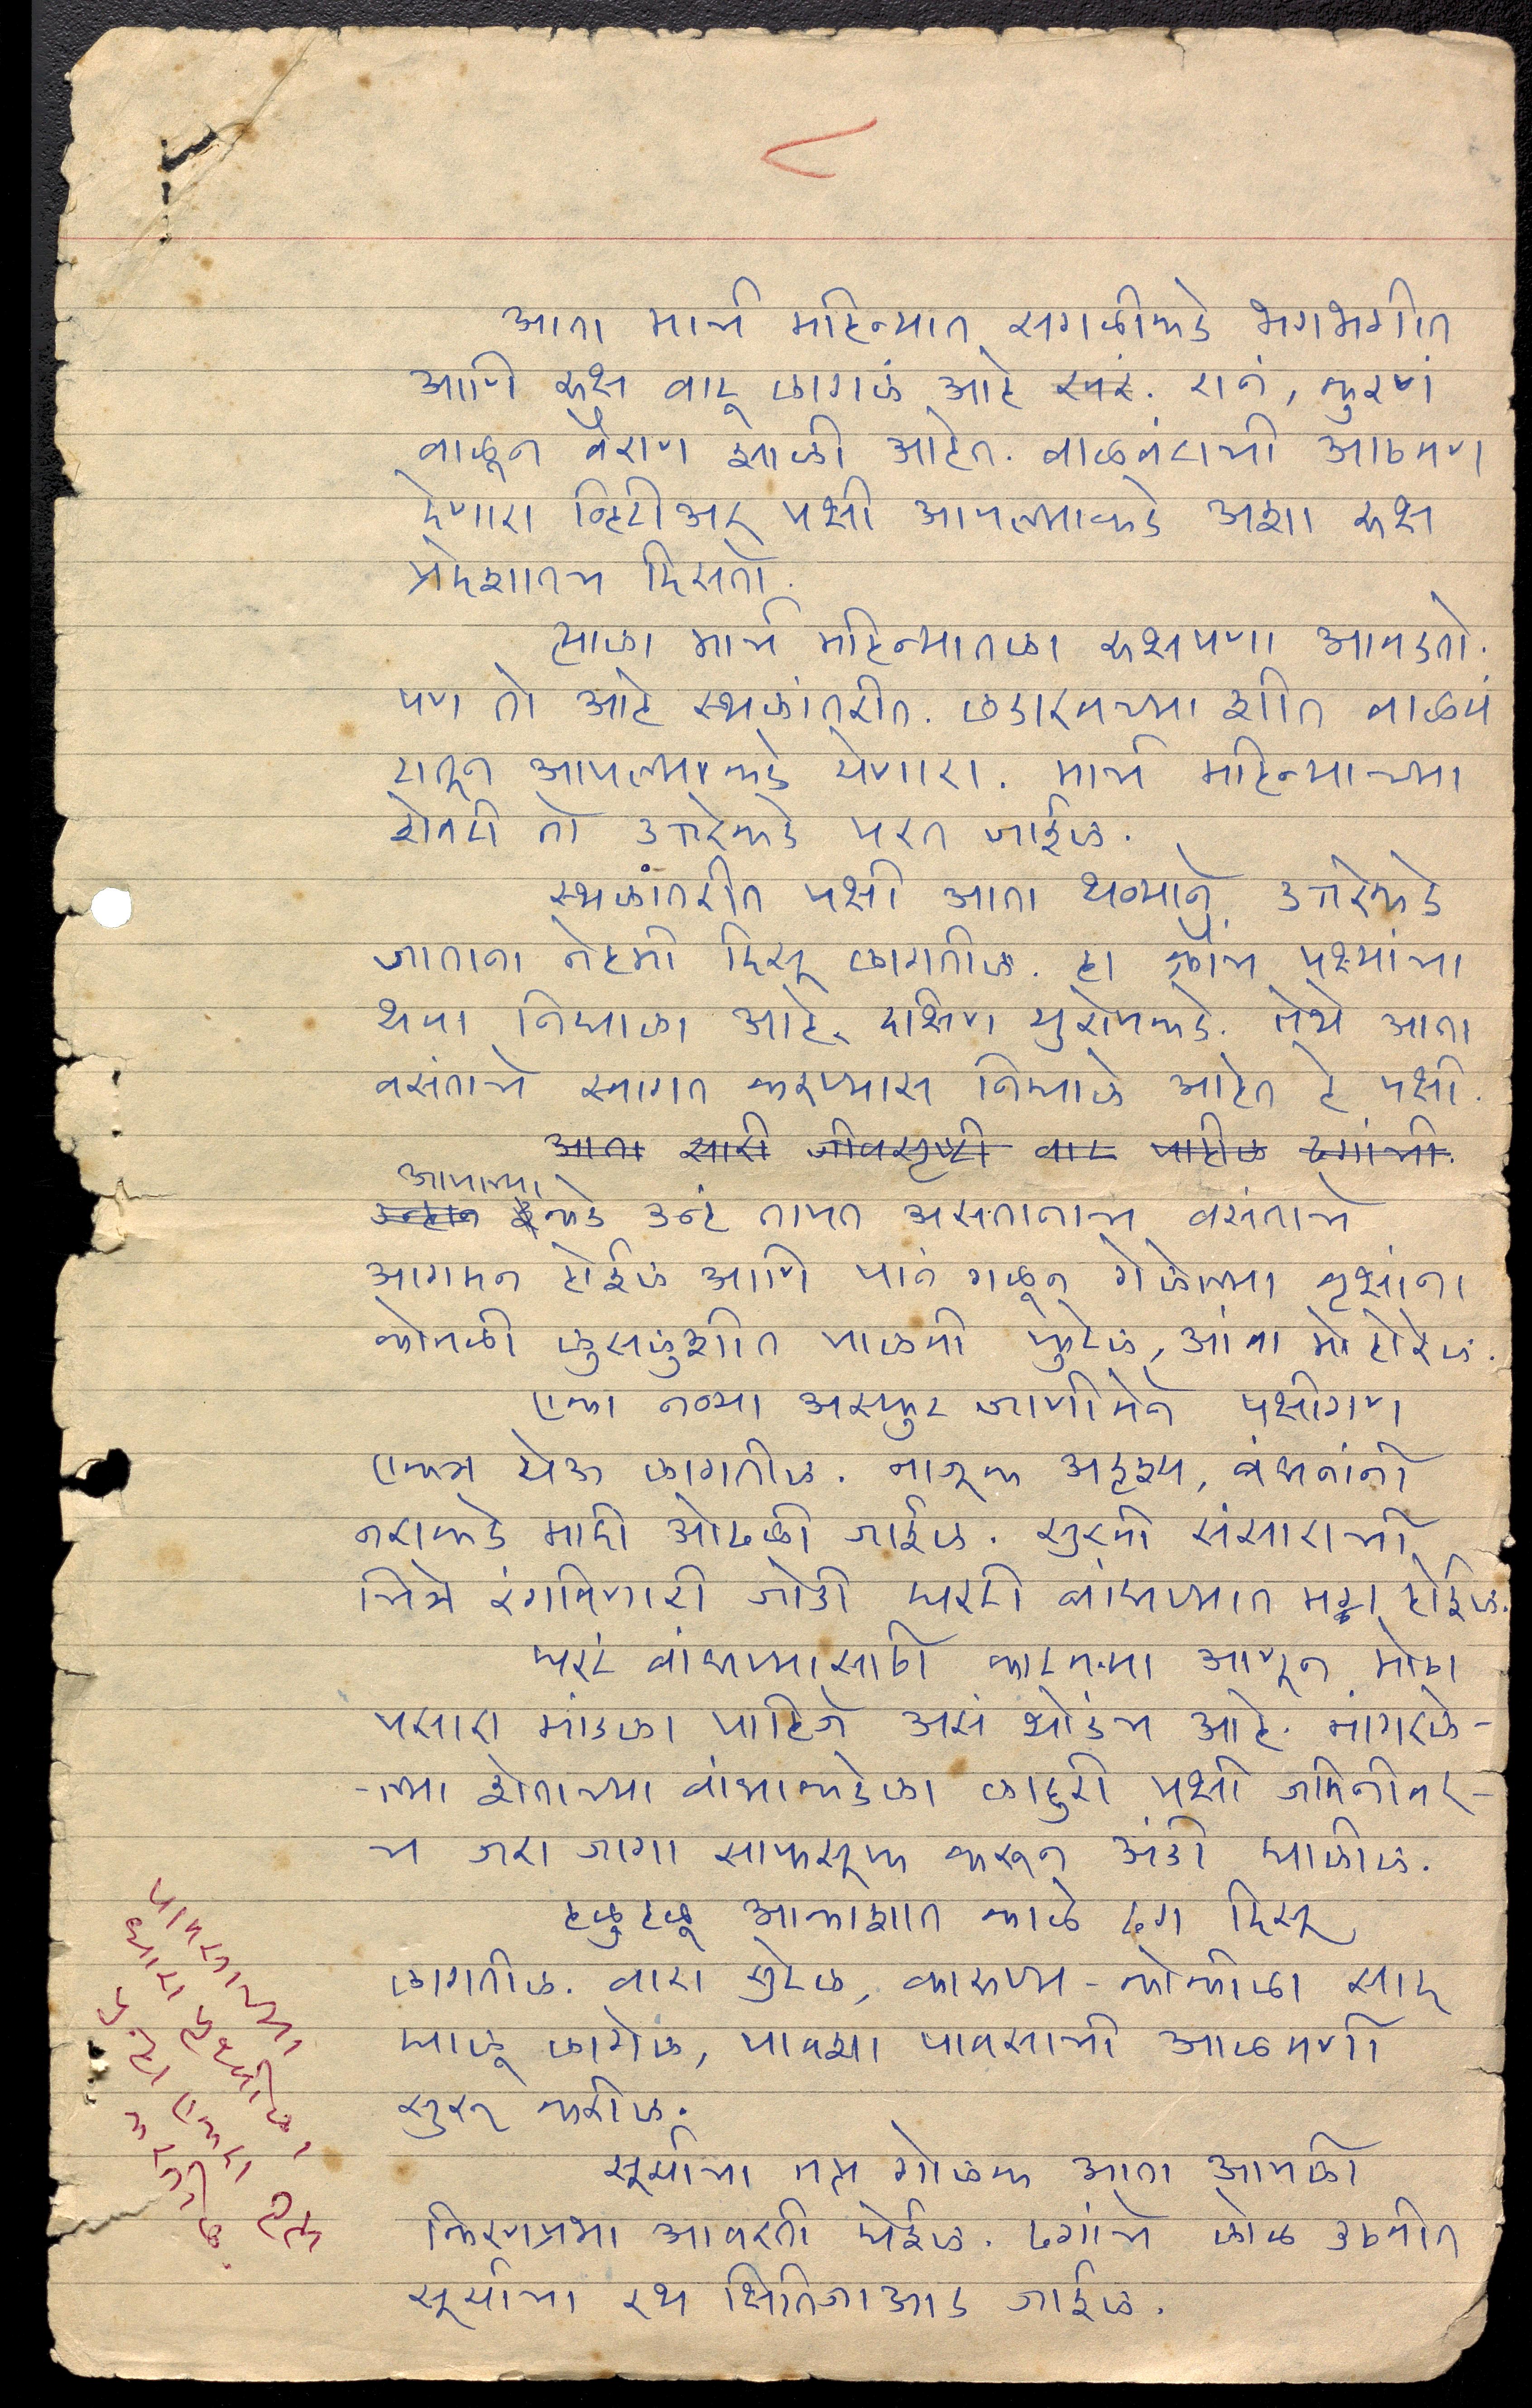 ८
आता मार्च महिन्यात सगळीकडे भगभगीत
आणि रुक्ष वाटू लागलं आहे खरं. रानं, कुरणं
वाळून वैराण झाली आहेत. वाळवंटाची आठवण
देणारा व्हिटीअर पक्षी आपल्याकडे अशा रुक्ष
प्रदेशातच दिसतो.
त्याला मार्च महिन्यातला रुक्षपणा आवडतो.
पण तो आहे स्थलांतरीत. लडाखच्या शीत वाळवं
टातून आपल्याकडे येणारा. मार्च महिन्याच्या
शेवटी तो उत्तरेकडे परत जाईल.
स्थलांतरीत पक्षी आता थव्याने उत्तरेकडे
जाताना नेहमी दिसू लागतील. हा क्रौंच पक्ष्यांचा
थवा निघाला आहे दक्षिण युरोपकडे. तेथे आता
वसंताचे स्वागत करण्यास निघाले आहेत हे पक्षी.
आता सारी जीवसृष्टी वाट पाहील ढगांची.
आपल्या
उन्हान इकडे उन्हं तापत असतानाच वसंताचे
आगमन होईल आणि पानं गळून गेलेल्या वृक्षांना
कोवळी लुसलुशीत पालवी फुटेल, आंबा मोहोरेल.
एका नव्या अस्फुट जाणीवेने पक्षीगण
एकत्र येऊ लागतील. नाजूक अदृश्य, बंधनांनी
नराकडे मादी ओढली जाईल. सुखी संसाराची
चित्रे रंगविणारी जोडी घरटी बांधण्यात मग्न होईल.
घरटं बांधण्यासाठी काटक्या आणून मोठा
पसारा मांडला पाहिजे असं थोडंच आहे. नांगरले-
-ल्या शेताच्या बांधाकडेला लाहुरी पक्षी जमिनीवर-
च जरा जागा साफसूफ करून अंडी घालील.
हळुहळू आकाशात काळे ढग दिसू
लागतील. वारा सुटेल, कारुण्य-कोकीळा साद
घालू लागेल, पावशा पावसाची आळवणी
सुरू करील.
सूर्याचा तप्त गोळक आता आपली
किरणप्रभा आवरती घेईल. ढगांचे लोळ उठवीत
सूर्याचा रथ क्षितिजाआड जाईल.
पावसाच्या